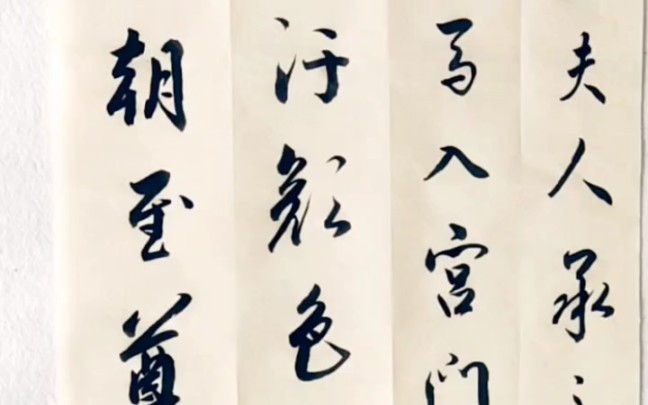 夫人承
马入宫门
汙颜色
朝至尊